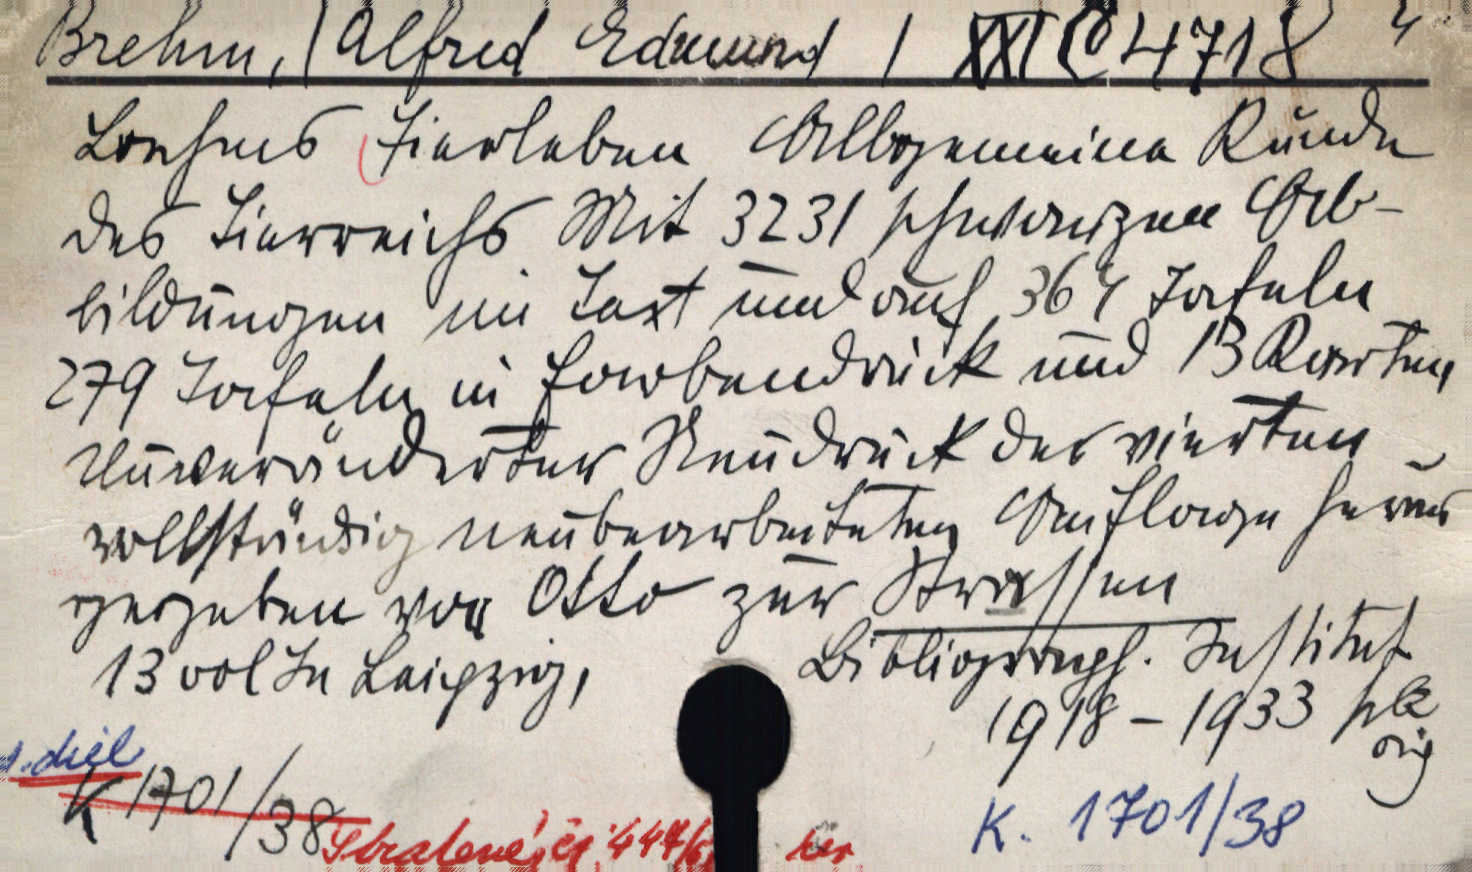 Brehm, (Alfred Edmund) XXI C 4718 4.
Brehms Tierleben Allgemeine Kunde
des Tierreichs Mit 3231 schwarzen Ab-
bildungen im Text und auf 364 Tafeln
279 Tafeln in Farbendruck und 13 Karten
Unveränderter Neudruck der vierten
vollständig neubearbeiteten Auflage heraus
gegeben von Otto zur Strassen
13 vol In Leipzig, Bibliograph. Institut
1918 – 1933
orig
1. diel
K 1701/38 K. 1701/38
Stratené, čj. 447/